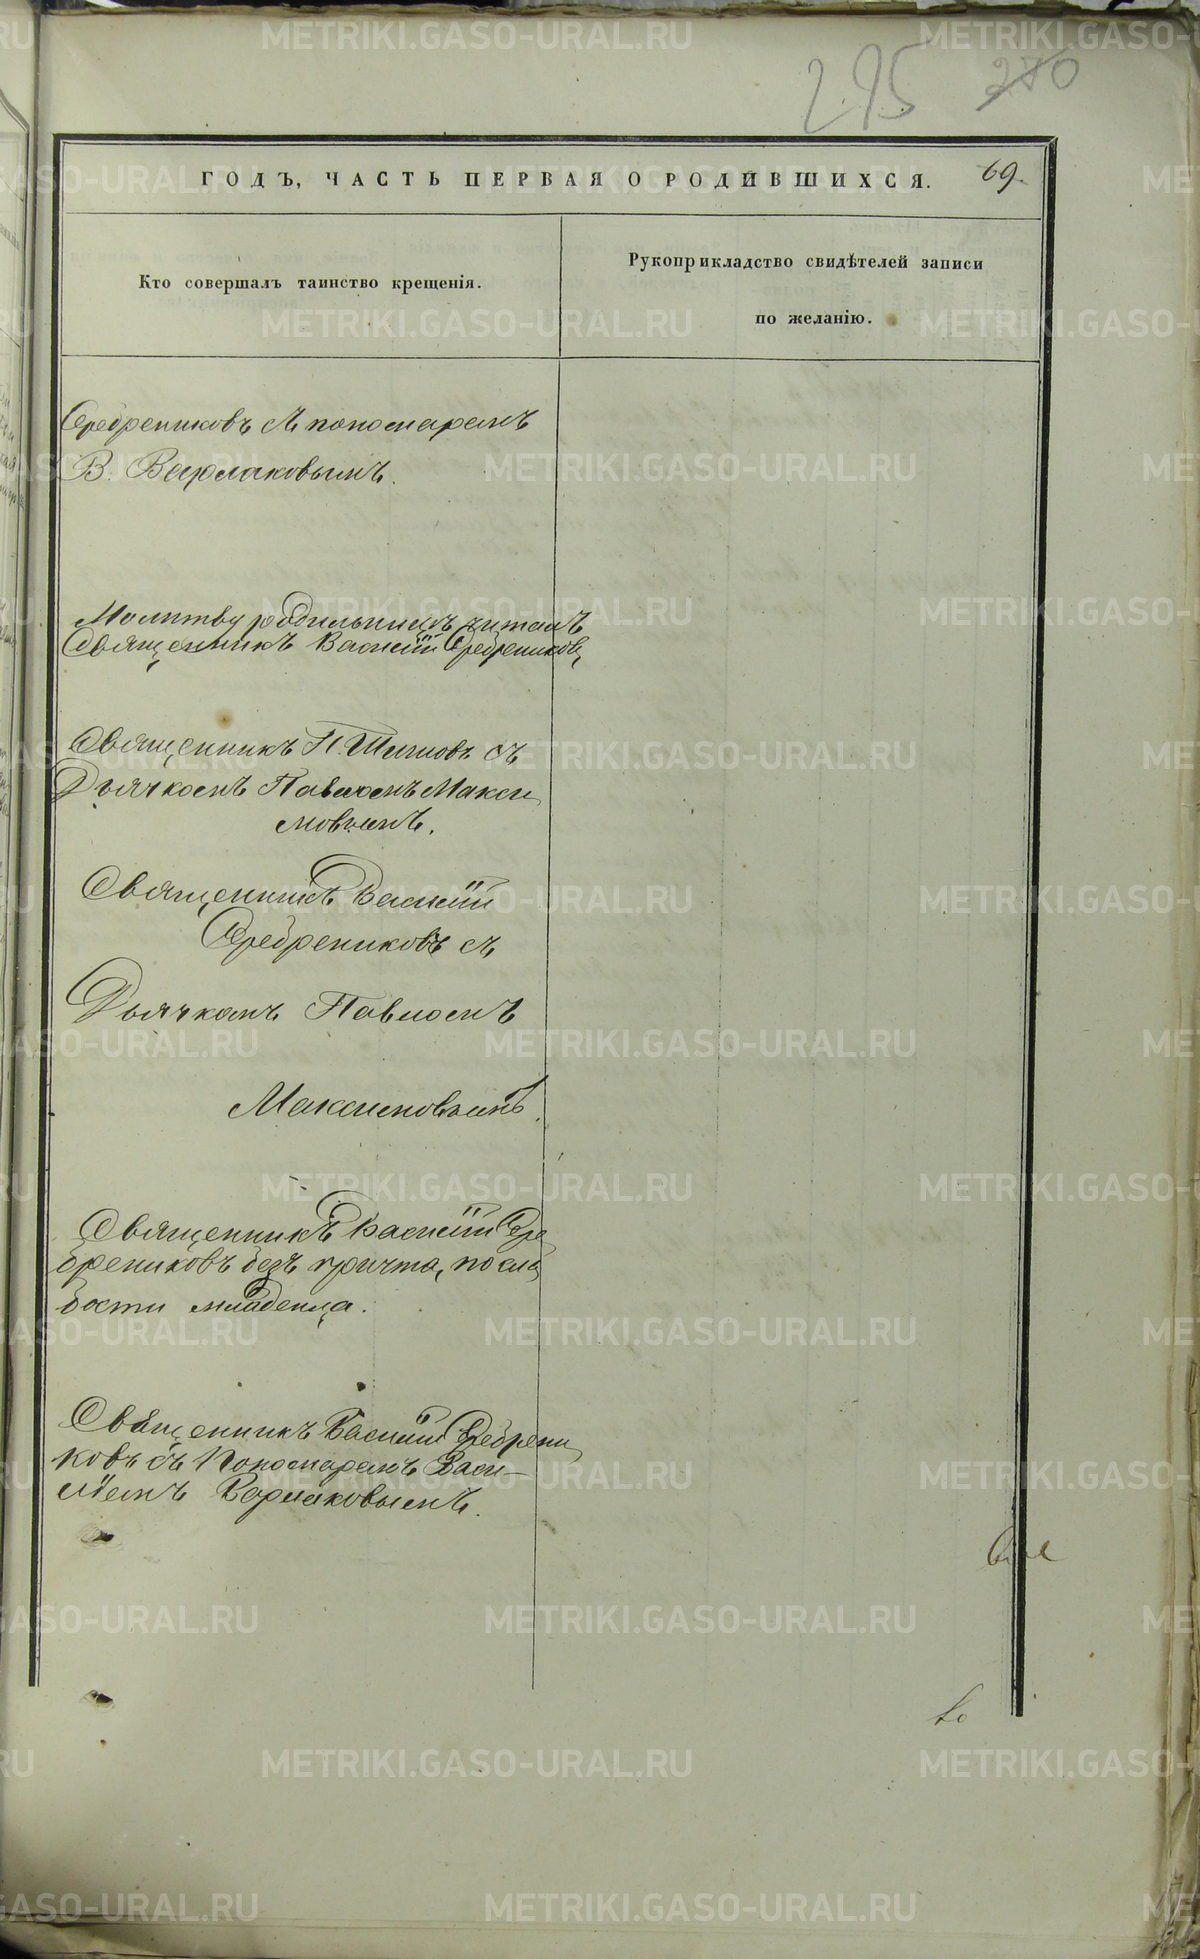 295 280
ГОДЪ, ЧАСТЬ ПЕРВАЯ О РОДИВШИХСЯ. 69.
Кто совершалъ таинство крещенія.
Рукоприкладство свидѣтелей записи
по желанію.
Серебрениковъ съ пономаремъ
В. Варлаковымъ.
Молитву родильницѣ читалъ
Священникъ Василій Серебрениковъ
Священникъ П. Шишовъ съ
Дьячкомъ Павломъ Макси
мовымъ.
Священникъ Василій
Серебрениковъ съ
Дьячкомъ Павломъ
Максимовымъ.
Священникъ Василій Сере
брениковъ безъ причта, по сла
бости младенца.
Священникъ Василій Серебрени
ковъ съ Пономаремъ Васи-
ліемъ Варлаковымъ.
METRIKI.GASO-URAL.RU